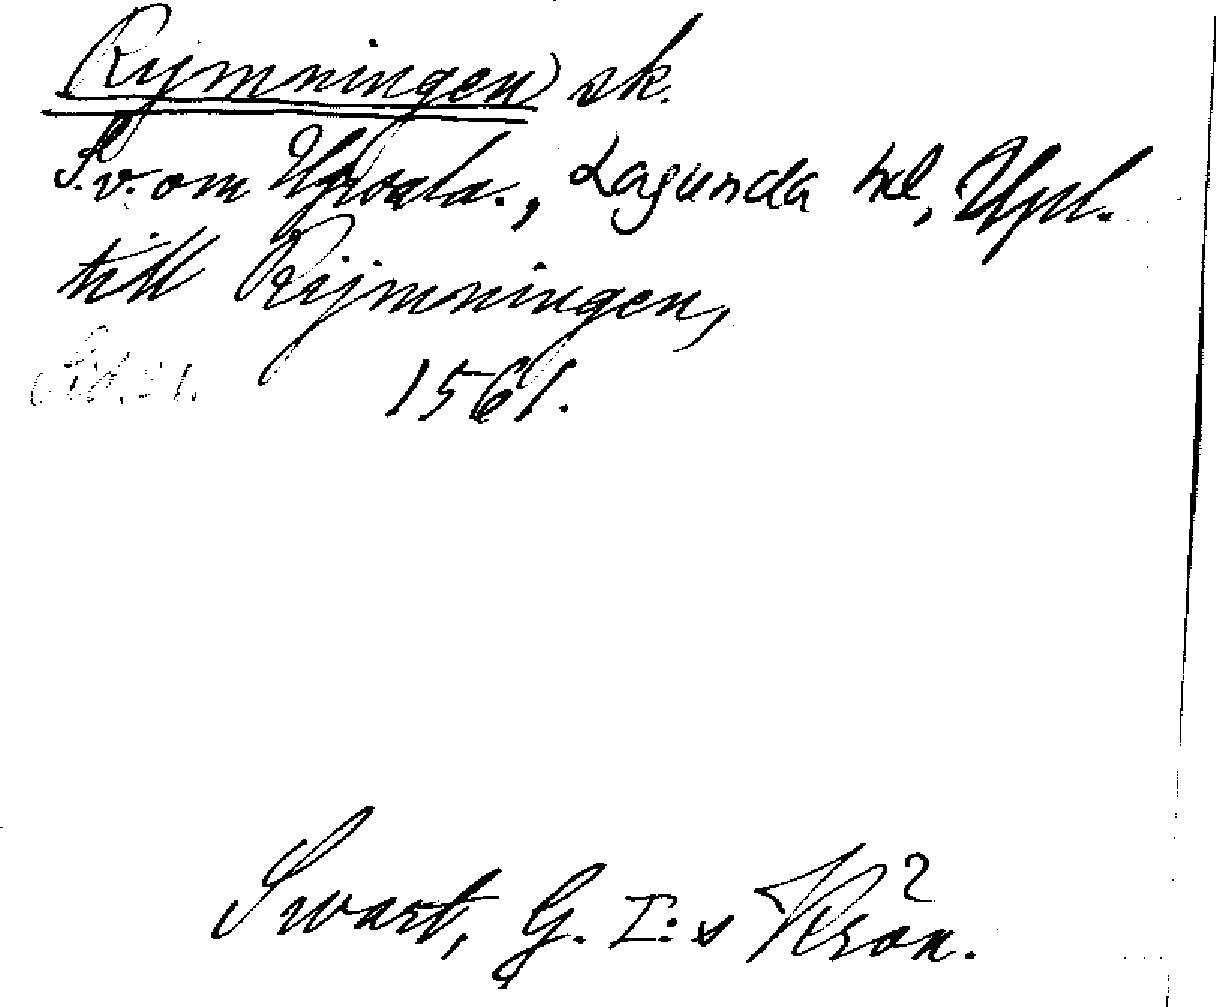 (Rijmningen) sk.
S.v. om Upsala., Lagunda hd, Upl.
till Rijmningen,
Sid. 21. 1561.
Swart, G. I:s Krön.²